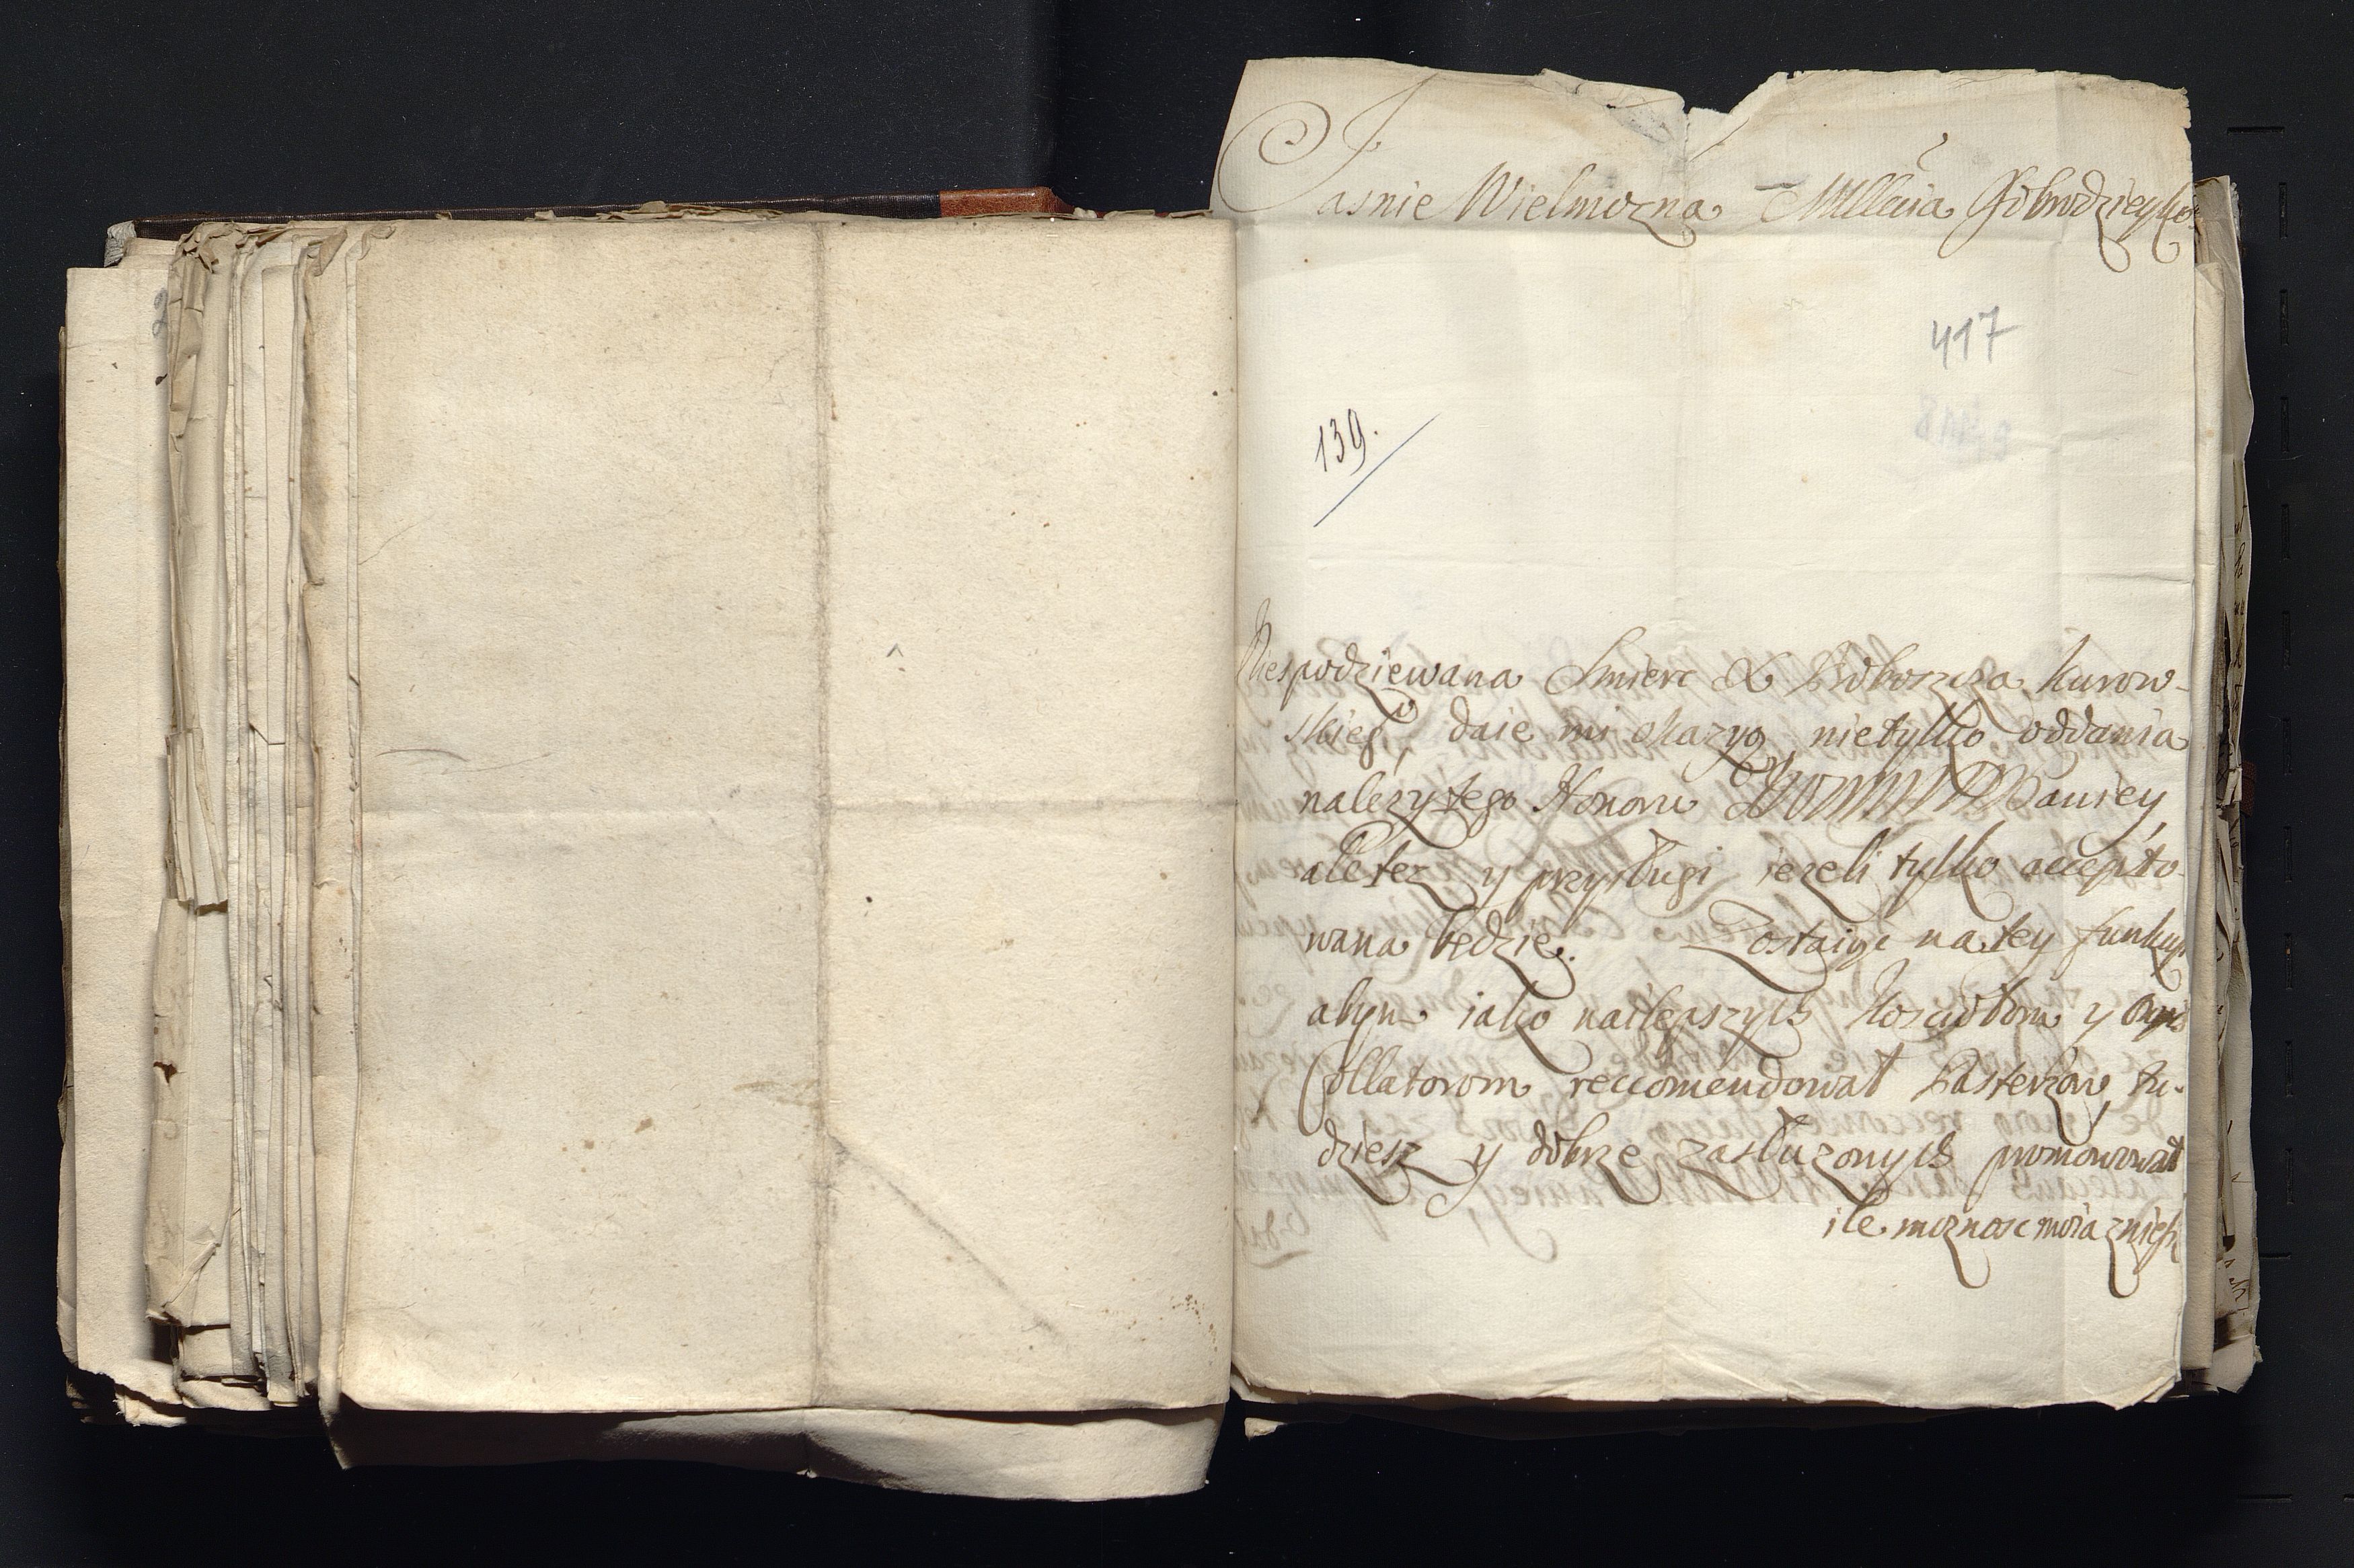 Jasnie Wielmozna Mllcia Dobrodzieyko
417
139.
Niespodziewana Smierc X Proboszcza Kurow-
skieg°, daie mi okazyą, nietylko oddania
nalezytego Honoru Paniey,
ale tez y przysługi iezeli tylko accepto-
wana będzie. Zostaiąc na tey funkcyi
abym iako naylepszych Kosciołom y
Collatorom reccomendował Pasterzow, tu-
dziesz y dobrze zasłuzonych promowował
ile moznosc moia zniesie